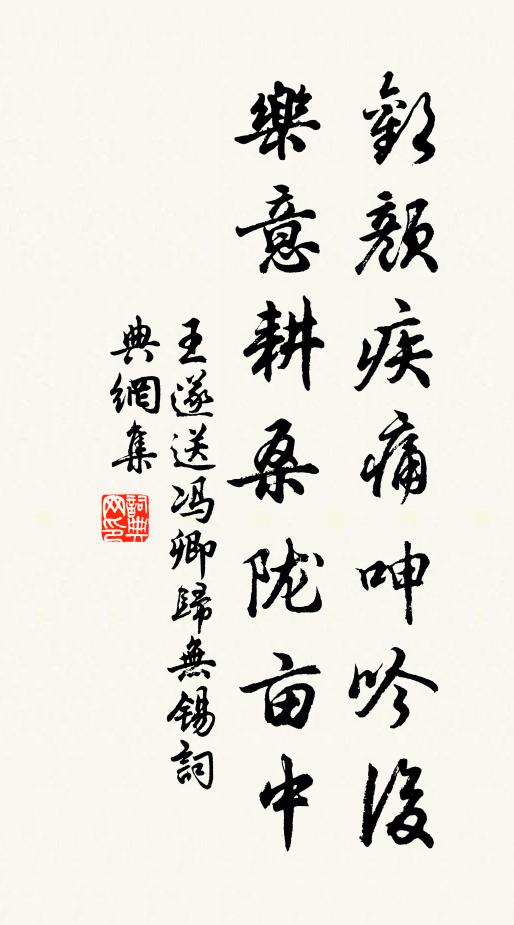 歡顏疾痛呻吟後
樂意耕桑陇亩中
王遂送冯卿歸無錫詞
典網集
詞典
网印